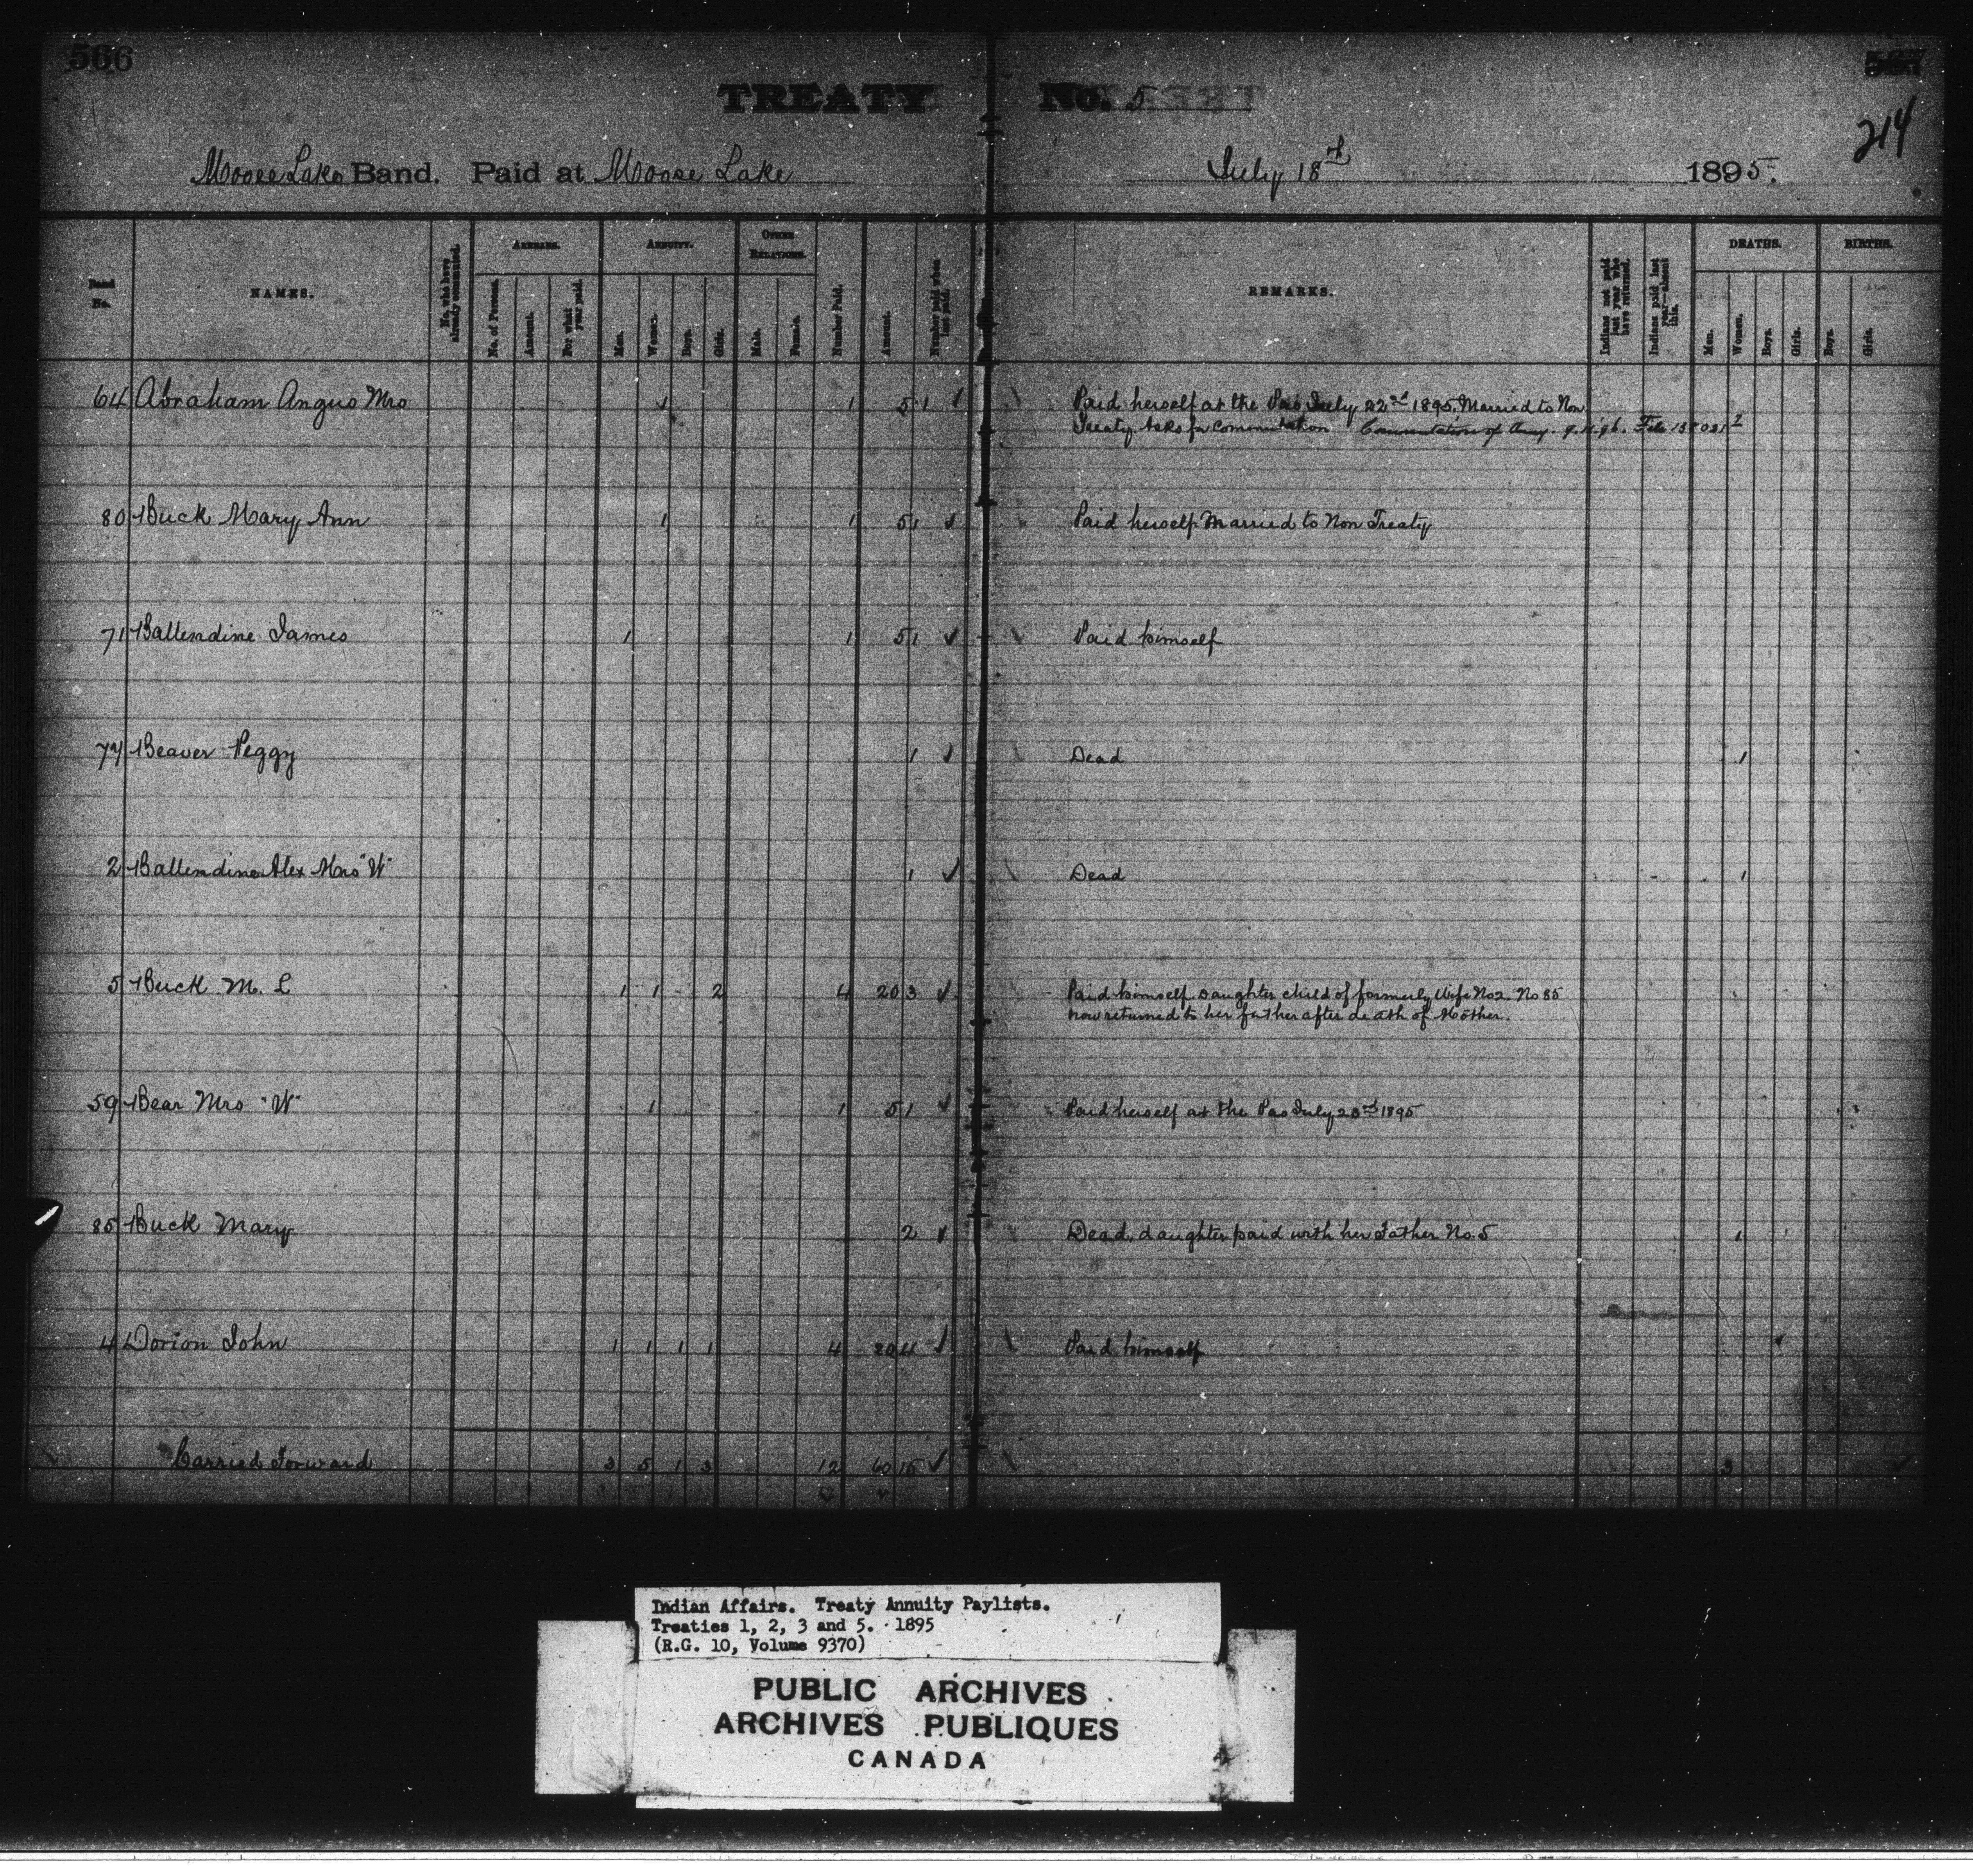 566
TREATY No. 5
214
Moose Lake Band. Paid at Moose Lake July 18th 1895.
Band No.
NAMES.
No. who have already commuted.
ARREARS.
No. of Persons.
Amount.
For what year paid.
ANNUITY.
Men.
Women.
Boys.
Girls.
OTHER RELATIONS.
Male.
Female.
Number Paid.
Amount.
Number paid when last paid.
REMARKS.
Indians not paid last year who have returned.
Indians paid last year—absent this.
DEATHS.
Men.
Women.
Boys.
Girls.
BIRTHS.
Boys.
Girls.
64 Abraham Angus Mrs 1 1 5 1 ✓ Paid herself at the Pas July 22nd 1895. Married to Non
Treaty. Asks for Commutation Commutation of Any. 9.11.96. File
80 Buck Mary Ann 1 1 5 1 ✓ Paid herself. Married to Non Treaty
71 Ballendine James 1 1 5 1 ✓ Paid himself
77 Beaver Peggy 1 ✓ Dead 1
2 Ballendine Alex Mrs "W" 1 ✓ Dead 1
5 Buck M. L 1 1 2 4 20 3 ✓ Paid himself. Daughter child of formerly Wife No2 No 85
now returned to her father after death of Mother.
59 Bear Mrs "W" 1 1 5 1 ✓ Paid herself at the Pas July 23rd 1895
85 Buck Mary 2 ✓ Dead, daughter paid with her Father No. 5 1
4 Dorion John 1 1 1 1 4 20 4 ✓ Paid himself
Carried Forward 3 5 1 3 12 60 15 ✓ 3 ✓
Indian Affairs. Treaty Annuity Paylists.
Treaties 1, 2, 3 and 5. 1895
(R.G. 10, Volume 9370)
PUBLIC ARCHIVES
ARCHIVES PUBLIQUES
CANADA